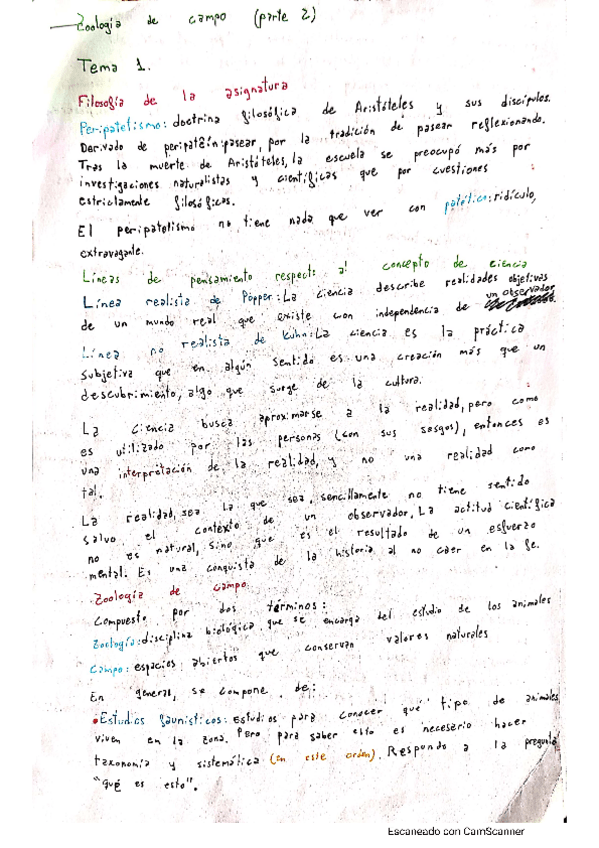 Zoología de campo (parte 2)
Tema 1.
Filosofía de la asignatura
Peripatetismo: doctrina filosófica de Aristóteles y sus discípulos.
Derivado de peripatêin: pasear, por la tradición de pasear reflexionando.
Tras la muerte de Aristóteles, la escuela se preocupó más por
investigaciones naturalistas y científicas que por cuestiones
estrictamente filosóficas.
El peripatetismo no tiene nada que ver con patético: ridículo,
extravagante.
Líneas de pensamiento respecto al concepto de ciencia
Línea realista de Popper: La ciencia describe realidades objetivas
de un mundo real que existe con independencia de un observador
Línea no realista de Kuhn: La ciencia es la práctica
subjetiva que en algún sentido es una creación más que un
descubrimiento, algo que surge de la cultura.
La ciencia busca aproximarse a la realidad, pero como
es utilizado por las personas (con sus sesgos), entonces es
una interpretación de la realidad, y no una realidad como
tal.
La realidad, sea la que sea, sencillamente no tiene sentido
salvo el contexto de un observador. La actitud científica
no es natural, sino que es el resultado de un esfuerzo
mental. Es una conquista de la historia al no caer en la fe.
Zoología de campo
Compuesto por dos términos:
Zoología: disciplina biológica que se encarga del estudio de los animales
Campo: espacios abiertos que conservan valores naturales
En general, se compone de:
•Estudios faunísticos: estudios para conocer qué tipo de animales
viven en la zona. Pero para saber esto es necesario hacer
taxonomía y sistemática (en este orden). Responde a la pregunta
"qué es esto".
Escaneado con CamScanner